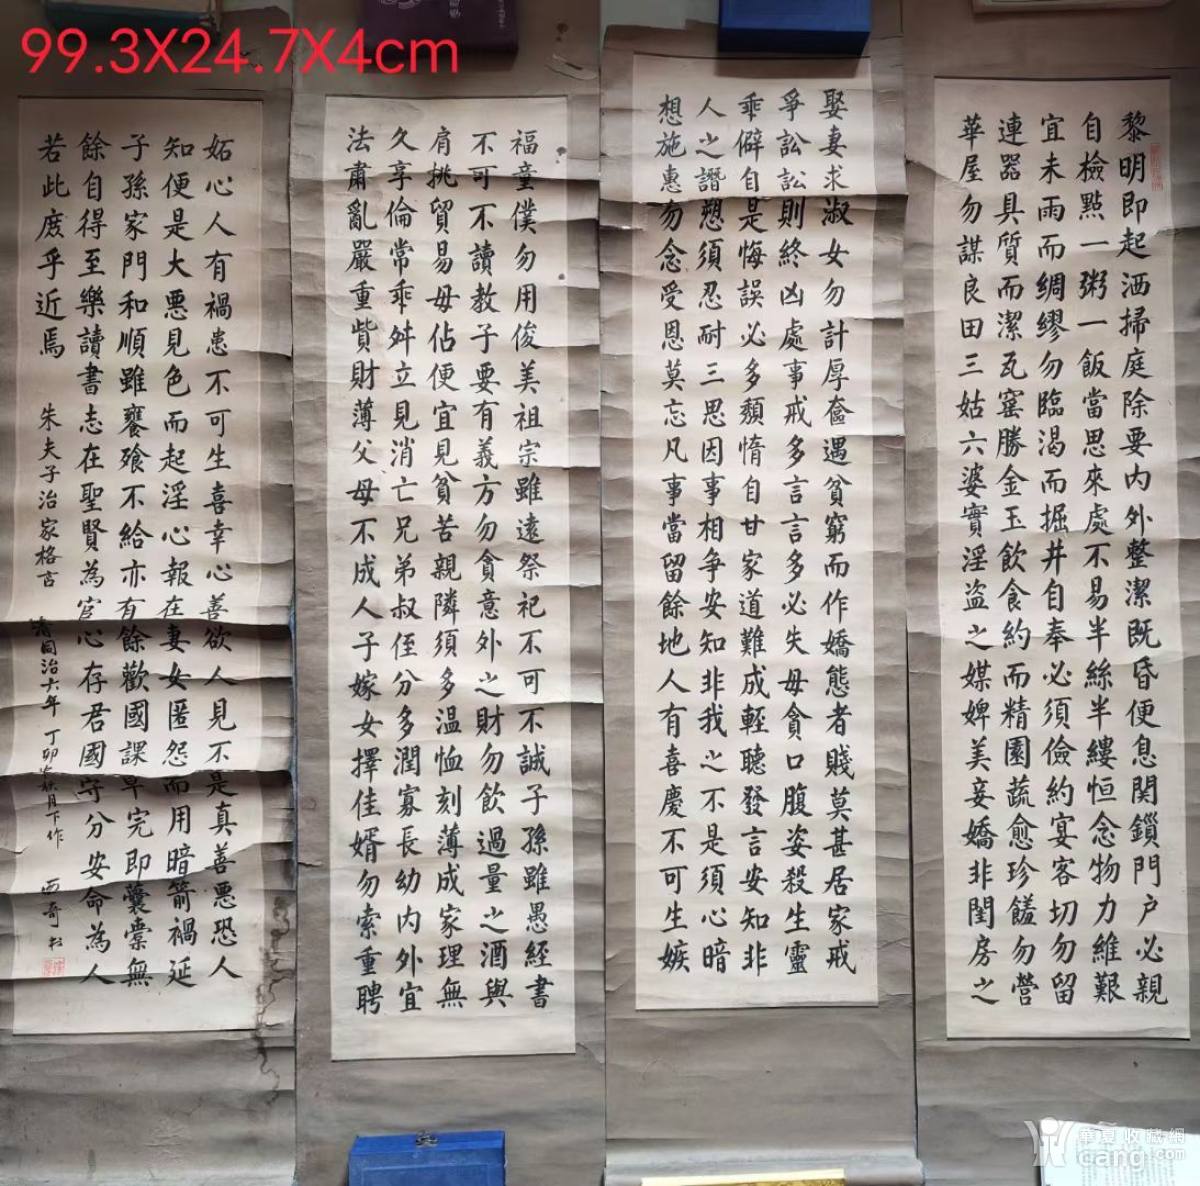 99.3X24.7X4cm
黎明即起洒掃庭除要内外整潔既昏便息関鎖門户必親
自檢點一粥一飯當思來處不易半絲半縷恒念物力維艱
宜未雨而綢繆勿臨渴而掘井自奉必須儉約宴客切勿留
連器具質而潔瓦窰勝金玉飲食約而精園蔬愈珍饈勿營
華屋勿謀良田三姑六婆實淫盜之媒婢美妾嬌非閨房之
福童僕勿用俊美祖宗雖遠祭祀不可不誠子孫雖愚經書
不可不讀教子要有義方勿貪意外之財勿飲過量之酒與
肩挑貿易毋佔便宜見貧苦親隣須多温恤刻薄成家理無
久享倫常乖舛立見消亡兄弟叔侄分多潤寡長幼内外宜
法肅亂嚴重貲財薄父母不成人子嫁女擇佳婿勿索重聘
娶妻求淑女勿計厚奩遇貧窮而作嬌態者賤莫甚居家戒
爭訟訟則終凶處事戒多言言多必失毋貪口腹姿殺生靈
乖僻自是悔誤必多頽惰自甘家道難成輕聽發言安知非
人之譖愬須忍耐三思因事相争安知非我之不是須心暗
想施惠勿念受恩莫忘凡事當留餘地人有喜慶不可生嫉
妬心人有禍患不可生喜幸心善欲人見不是真善惡恐人
知便是大惡見色而起淫心報在妻女匿怨而用暗箭禍延
子孫家門和順雖饔飧不給亦有餘歡國課早完即囊橐無
餘自得至樂讀書志在聖賢為官心存君國守分安命為人
若此庶乎近焉 朱夫子治家格言
清同治六年丁卯 月下作
華夏收藏網
cang.com